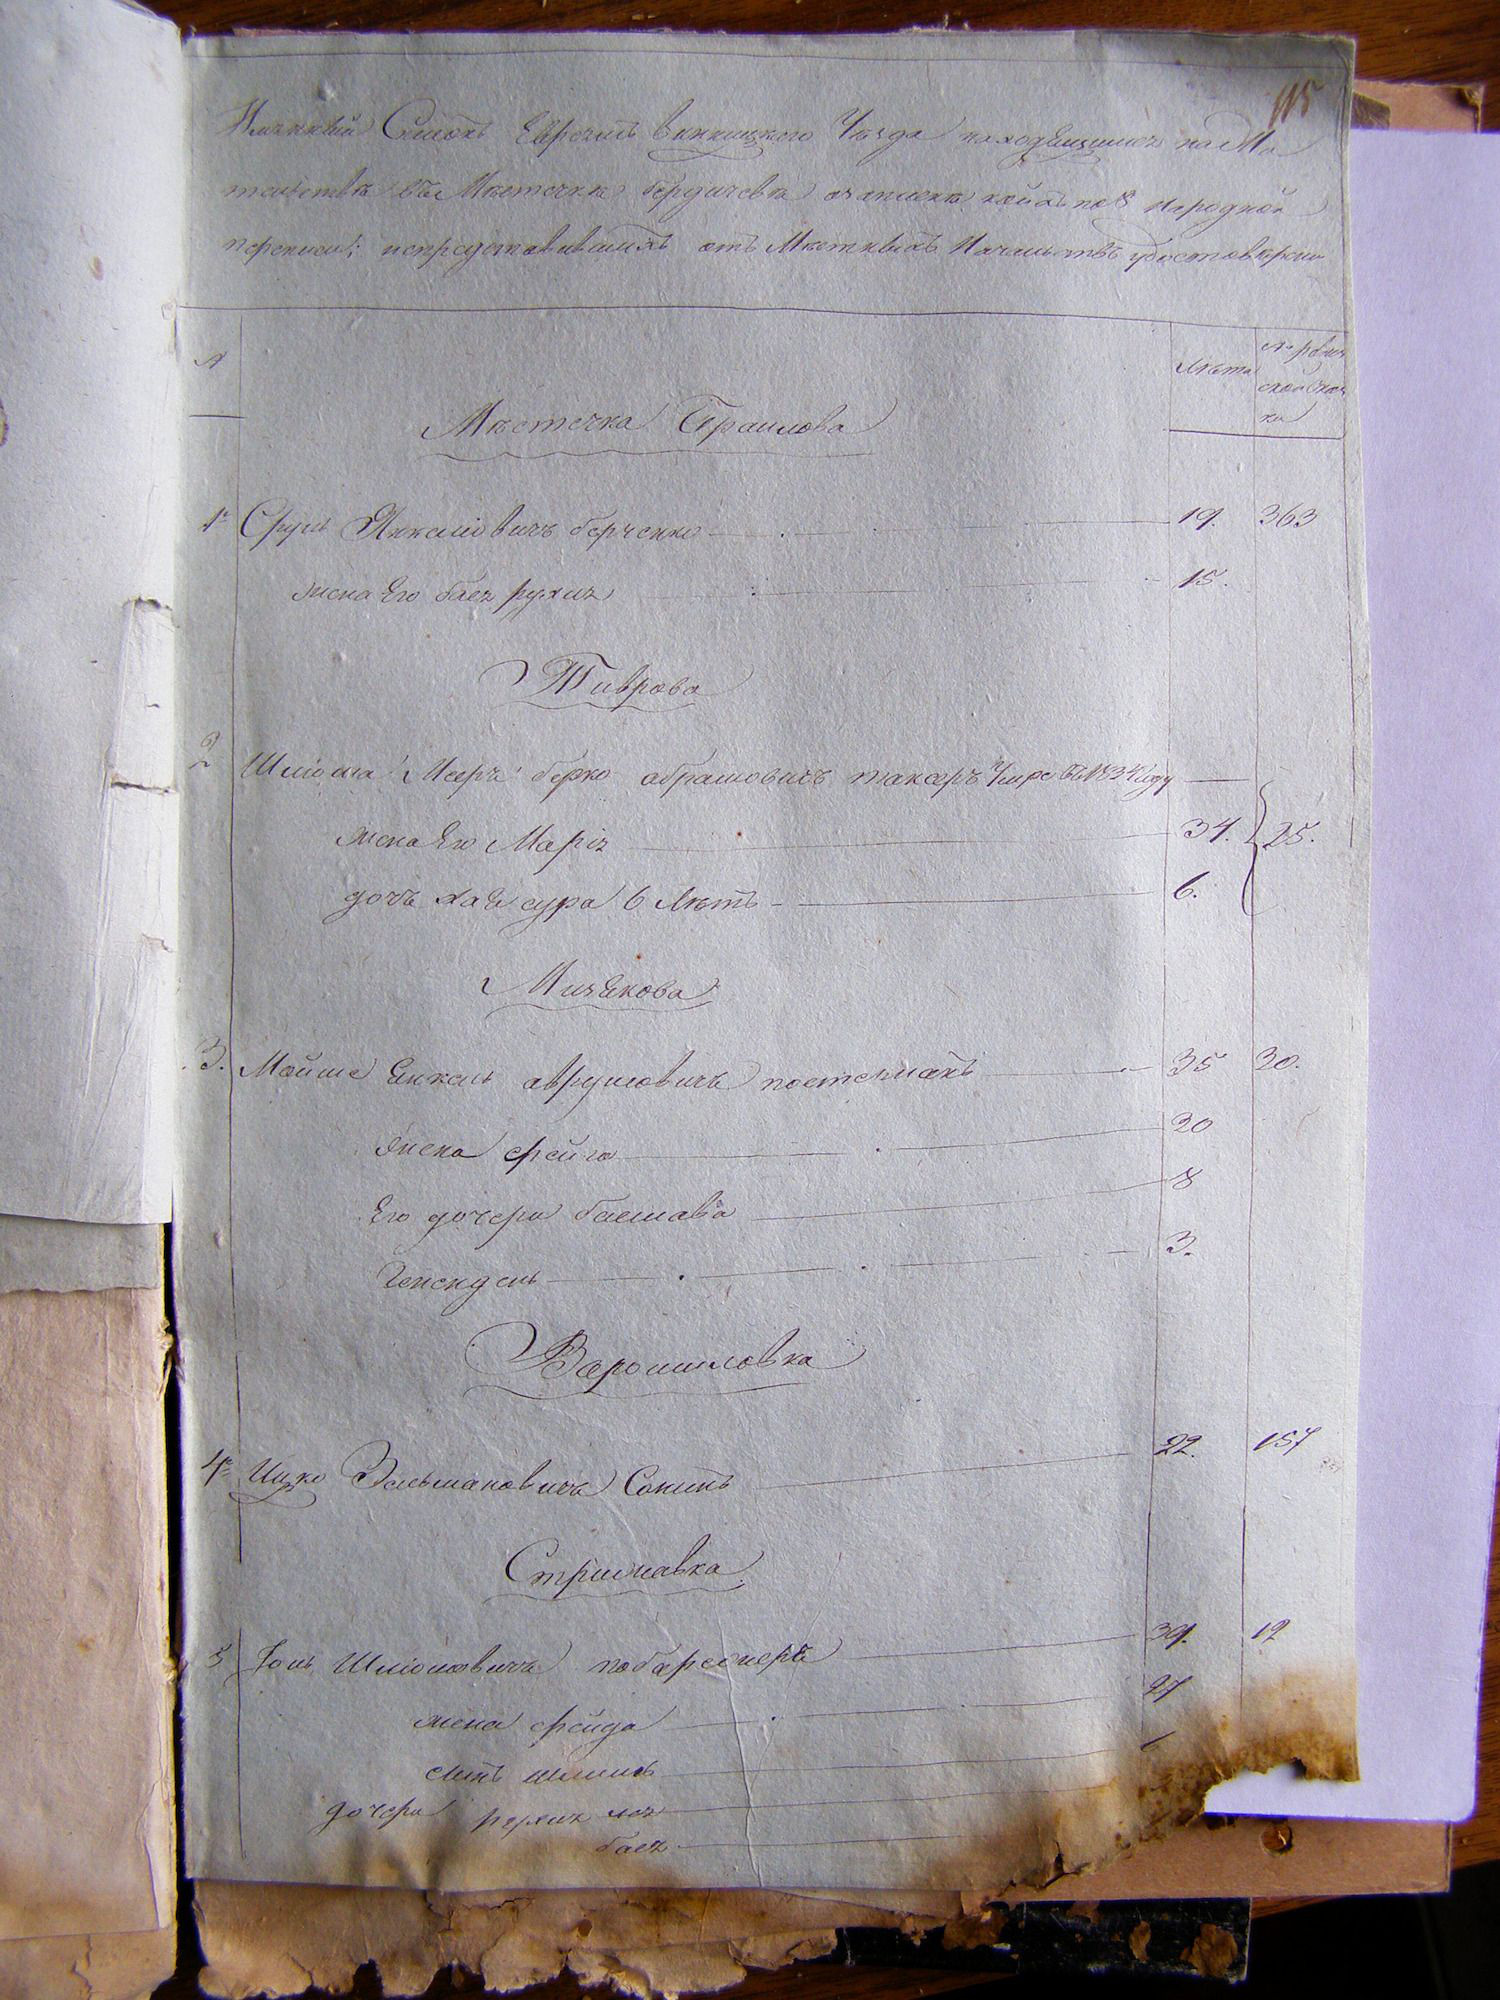 115
Имянный Списокъ Евреямъ Винницкого Уезда находящимся на
въ Местечке Бердичеве кои по 8 народной
переписи; непредставившихъ отъ Местныхъ Начальствъ удостоверени
№
Лета
№ ревиз
ской сказ
ки
Местечка Браилова
1. Сруль Янкеліовичъ берченко 19. 363
жена Его бася рухля 15.
Тиврова
2 Шліома Мееръ берко абрамовичъ таксеръ Умре въ 1834 году
жена Его Марія 34. 25.
дочь хая сура 6 летъ 6.
Мизякова
3. Мойше Янкель аврумовичъ постельакъ 35 30.
жена фейга 20
Его дочери басшава 8
Генендель 3.
Варошиловка
4. Ицко Зельмановичъ Сокинъ 22. 157
Стрижавка
5 Іоль Шліомовичъ 39. 12
жена фрейда 27
сынъ
дочери рухля лея
бася